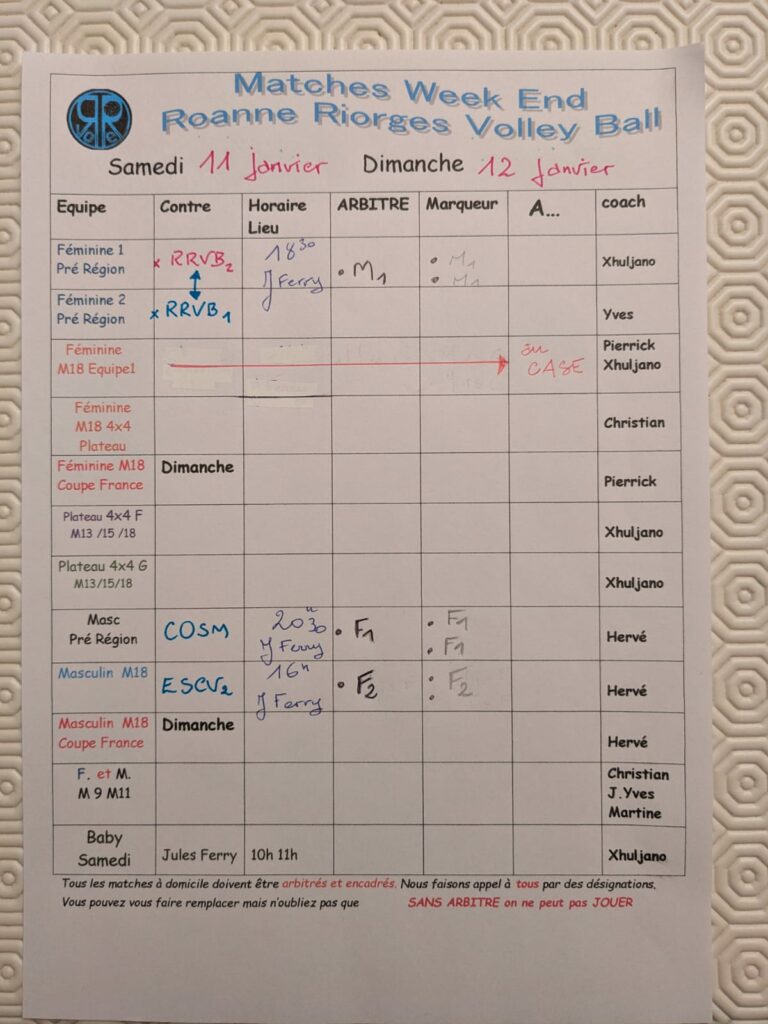 Matches Week End
Roanne Riorges Volley Ball
Samedi 11 janvier Dimanche 12 janvier
Equipe Contre Horaire Lieu ARBITRE Marqueur A... coach
Féminine 1 Pré Région x RRVB2 18 30 J Ferry • M1 • M1 • M1 Xhuljano
Féminine 2 Pré Région x RRVB1 Yves
Féminine M18 Equipe1 CASE Pierrick Xhuljano
Féminine M18 4x4 Plateau Christian
Féminine M18 Coupe France Dimanche Pierrick
Plateau 4x4 F M13 /15 /18 Xhuljano
Plateau 4x4 G M13/15/18 Xhuljano
Masc Pré Région COSM 20h30 J Ferry • F1 • F1 • F1 Hervé
Masculin M18 ESCV2 16h J Ferry • F2 • F2 • Hervé
Masculin M18 Coupe France Dimanche Hervé
F. et M. M 9 M11 Christian J.Yves Martine
Baby Samedi Jules Ferry 10h 11h Xhuljano
Tous les matches à domicile doivent être arbitrés et encadrés. Nous faisons appel à tous par des désignations.
Vous pouvez vous faire remplacer mais n'oubliez pas que SANS ARBITRE on ne peut pas JOUER